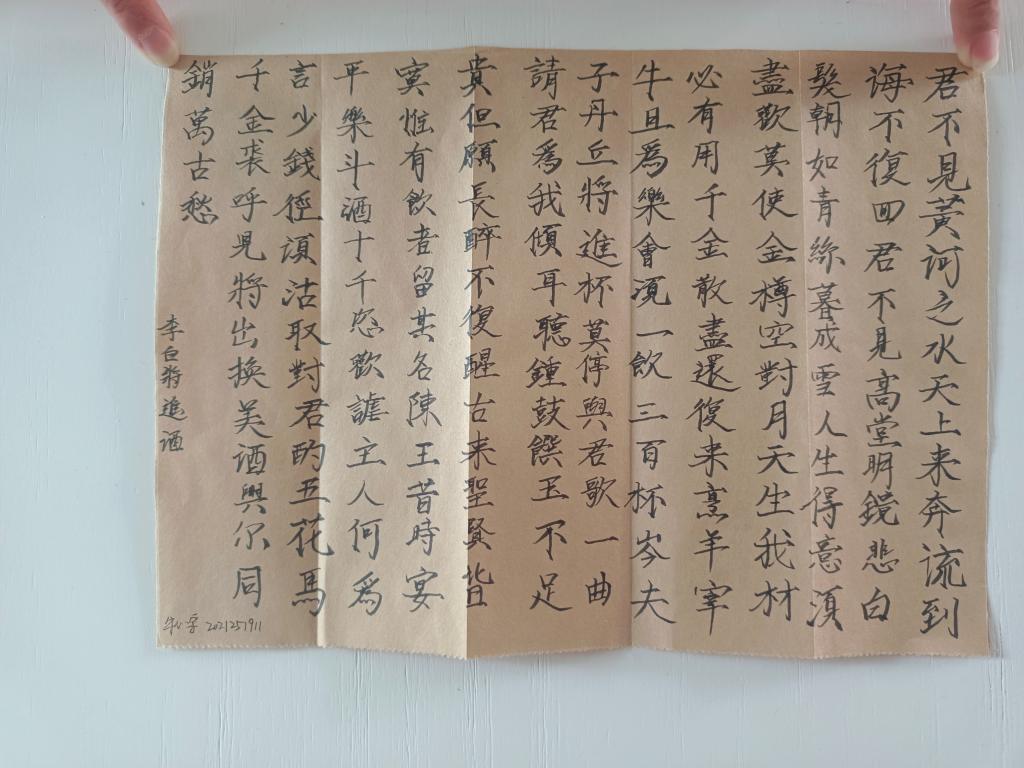 君不見黃河之水天上来奔流到
海不復回君不見高堂明鏡悲白
髮朝如青絲暮成雪人生得意須
盡歡莫使金樽空對月天生我材
必有用千金散盡還復来烹羊宰
牛且爲樂會須一飲三百杯岑夫
子丹丘將進杯莫停與君歌一曲
請君爲我傾耳聽鍾鼓饌玉不足
貴但願長醉不復醒古来聖賢皆
寞惟有飲者留其名陳王昔時宴
平樂斗酒十千恣歡謔主人何爲
言少錢徑須沽取對君酌五花馬
千金裘呼児將出換美酒與尔同
銷萬古愁
李白將進酒
2021251911